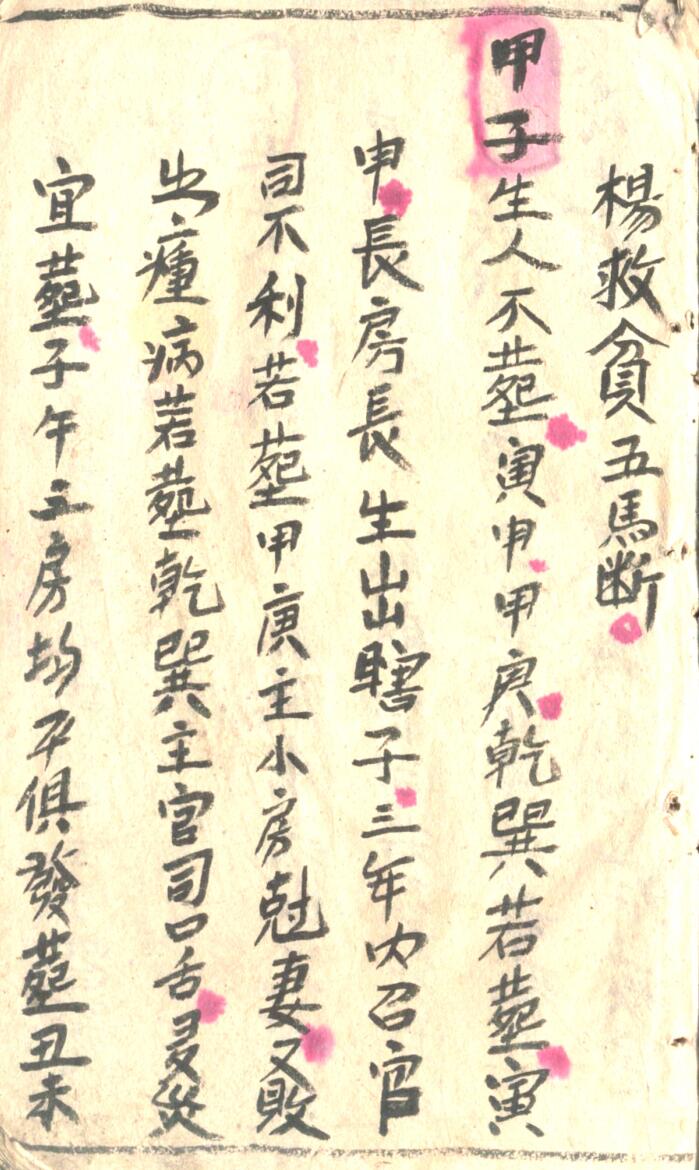 楊救貧五馬断
甲子生人不塟寅申甲庚乾巽若塟寅
申長房長生出瞎子三年内召官
司不利若塟甲庚主小房尅妻又敗
出瘇病若塟乾巽主官司口舌多災
宜塟子午三房均平俱發塟丑未